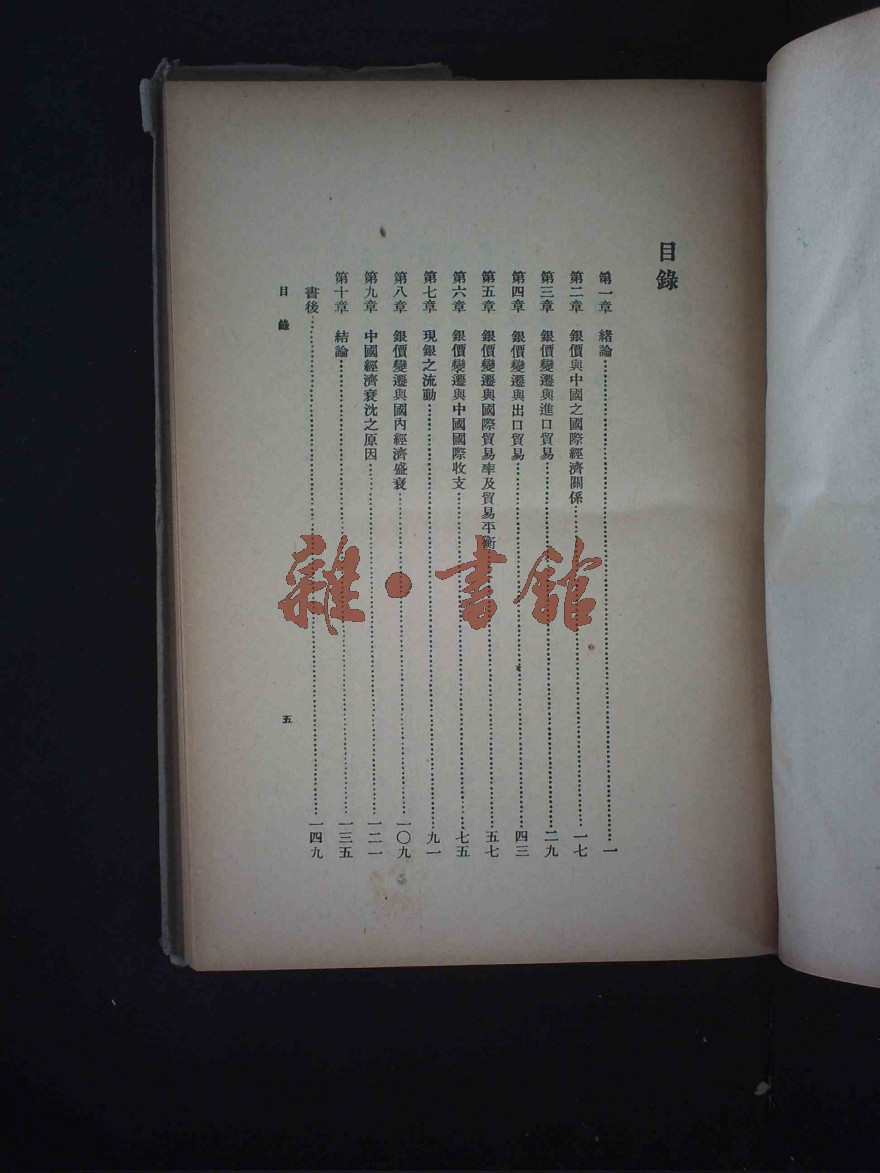 目錄
第一章 緒論 一
第二章 銀價與中國之國際經濟關係 一七
第三章 銀價變遷與進口貿易 二九
第四章 銀價變遷與出口貿易 四三
第五章 銀價變遷與國際貿易率及貿易平衡 五七
第六章 銀價變遷與中國國際收支 七五
第七章 現銀之流動 九一
第八章 銀價變遷與國內經濟盛衰 一〇九
第九章 中國經濟衰沈之原因 一二一
第十章 結論 一三五
書後 一四九
目錄
五
雜·書館